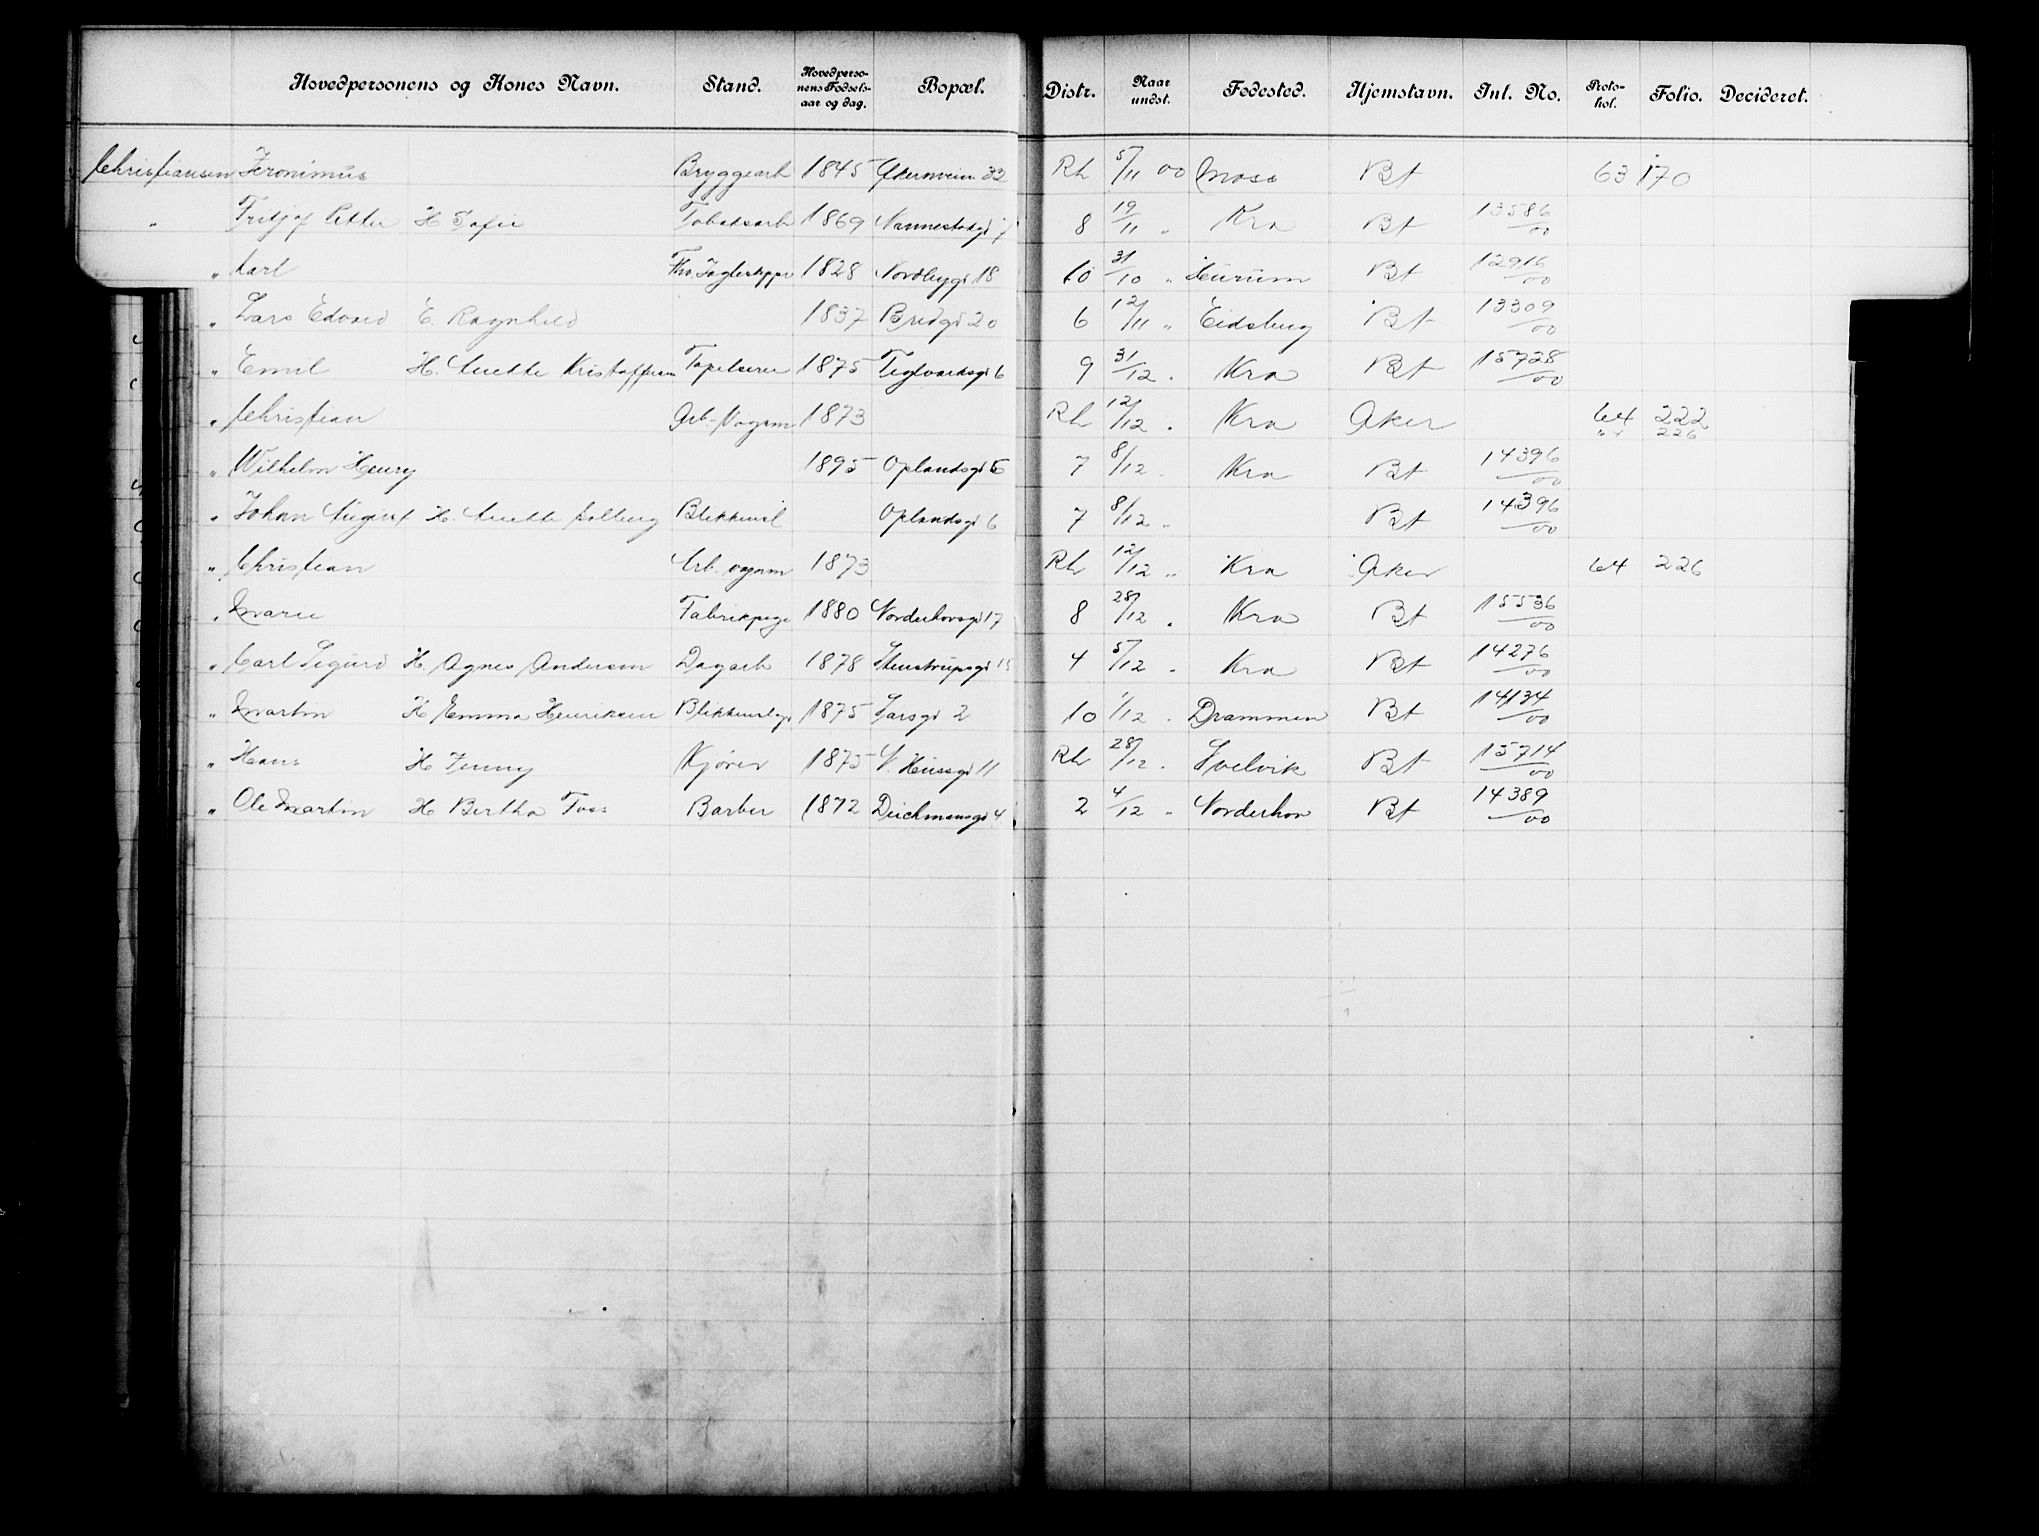 Hovedpersonens og Kones Navn. Stand. Hovedperso-nens Fødsels-aar og dag. Bopæl. Distr. Naar undst. Fødested. Hjemstavn. Jnl. No. Proto-kol. Folio. Decideret.
Christiansen Jeronimus Bryggearb 1845 Akersveien 32 Rh 5/11 00 Moss Bt 63 170
" Fritjof Petter H Sofie Tobaksarb 1869 Nannestadgd 7 8 19/11 " Kra Bt 13586/00
" Carl 1828 Nordbygd 18 10 31/10 " Hurum Bt 12916/00
" Lars Edvard E. Ragnhild 1837 Bredgd 20 6 12/11 " Eidsberg Bt 13309/00
" Emil H. Anette Kristoffersen Tapetserer 1875 Teglverksgd 6 9 31/12 " Kra Bt 15728/00
" Christian Arb-Vognm 1873 Rh 12/12 " Kra Aker 64 222
64 226
" Wilhelm Henry 1895 Oplandsgd 6 7 8/12 " Kra Bt 14396/00
" Johan August H. Anette Solberg Blikkensl Oplandsgd 6 7 8/12 " Bt 14396/00
" Christian Arb. vognm 1873 Rh 12/12 " Kra Aker 64 226
" Marie Fabrikpige 1880 Norderhovsgd 17 8 28/12 " Kra Bt 15536/00
" Carl Sigurd H. Agnes Andersen Dagarb 1878 Stenstrupsgd 15 4 5/12 " Kra Bt 14276/00
" Martin H Emma Henriksen Blikkenslags 1875 Larsgd 2 10 1/12 " Drammen Bt 14134/00
" Hans H Jenny Kjører 1875 Husegd 11 Rh 28/12 " Svelvik Bt 15714/00
" Ole Martin H Bertha Foss Barber 1872 Deichmansgd 4 2 4/12 " Norderhov Bt 14389/00